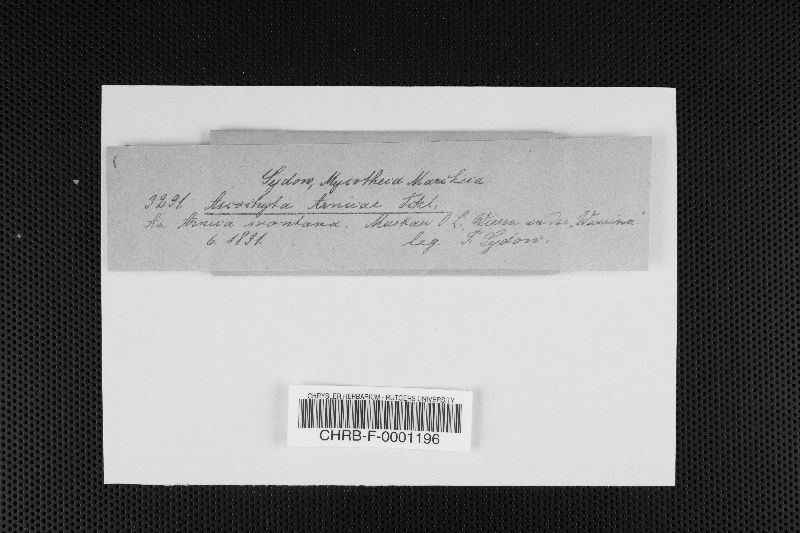 Sydow, Mycotheca Marchica
3291. Ascochyta Arnicae Fckl.
An Arnica montana. Muskau O L, Wiesen an der „Wussina“
6. 1891. leg. P. Sydow.
CHRYSLER HERBARIUM - RUTGERS UNIVERSITY
CHRB-F-0001196